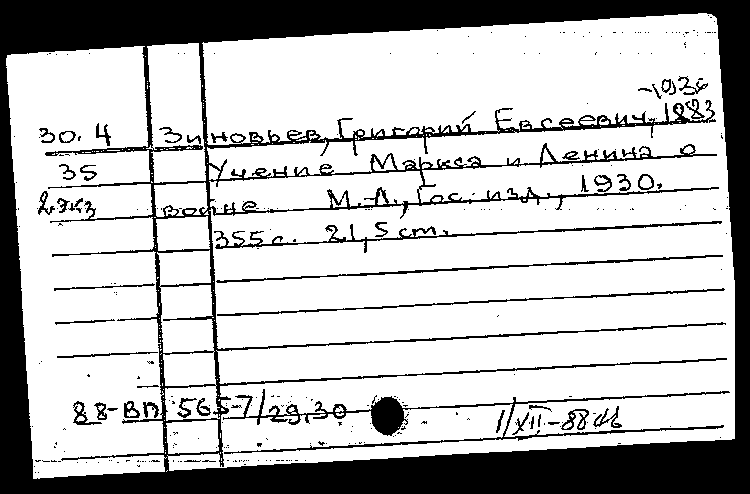 -1936
30.4 Зиновьев, Григорий Евсеевич, 1883
35 Учение Маркса и Ленина о
2 экз войне. М.-Л., Гос. изд., 1930.
355 с. 21,5 cm.
88-ВП 565-7/29,30
1/XII-88